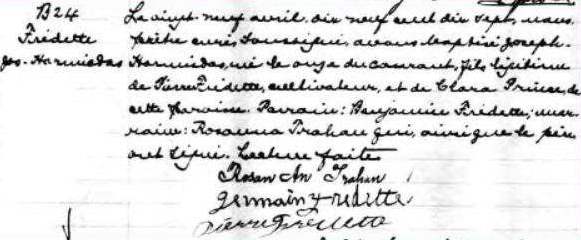 B24
Fredette
Jos-Hormisdas
Le vingt-neuf avril, dix neuf cent dix sept, nous
prêtre curé, soussigné, avons baptisé Joseph-
Hormisdas, né le onze du courant, fils légitime
de Pierre Fredette, cultivateur, et de Clara Prince, de
cette paroisse. Parrain: Benjamin Fredette; mar-
raine: Rosanna Trahan qui, ainsi que le père
ont signé. Lecture faite
Rosan An Trahan
Germain Fredette
Pierre Fredette